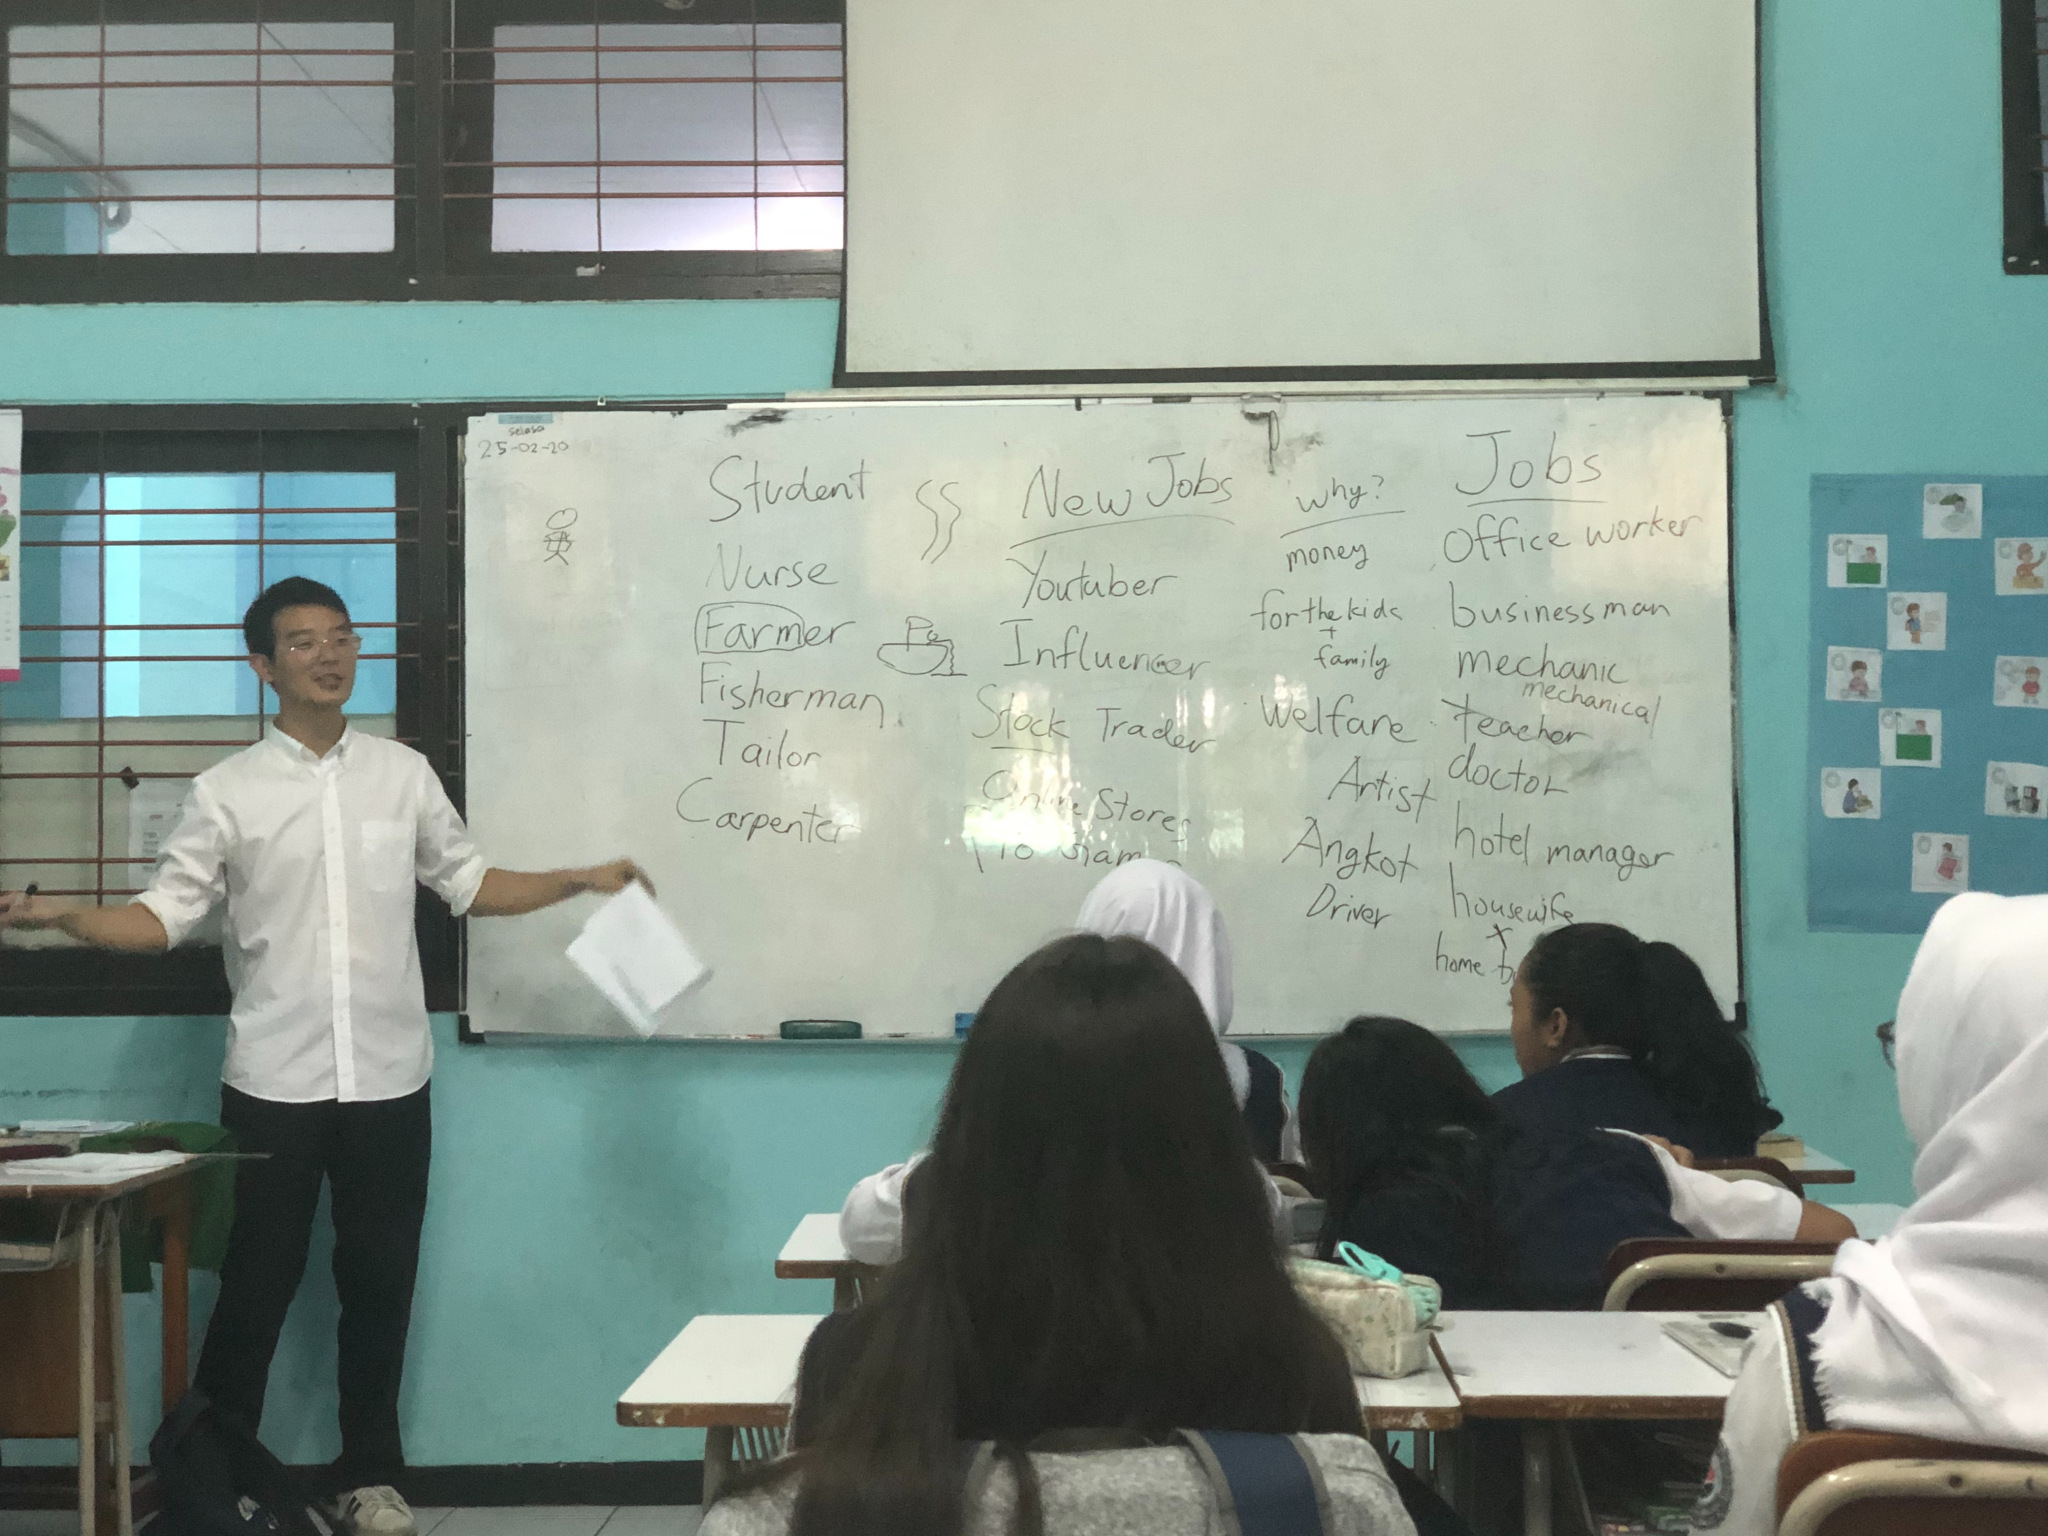 selasa
25-02-20
Student
Nurse
Farmer
Fisherman
Tailor
Carpenter
New Jobs
Youtuber
Influencer
Stock Trader
Online Stores
Pro
why?
money
for the kids
+
family
Welfare
Artist
Angkot
Driver
Jobs
Office worker
businessman
mechanic
mechanical
teacher
doctor
hotel manager
housewife
home